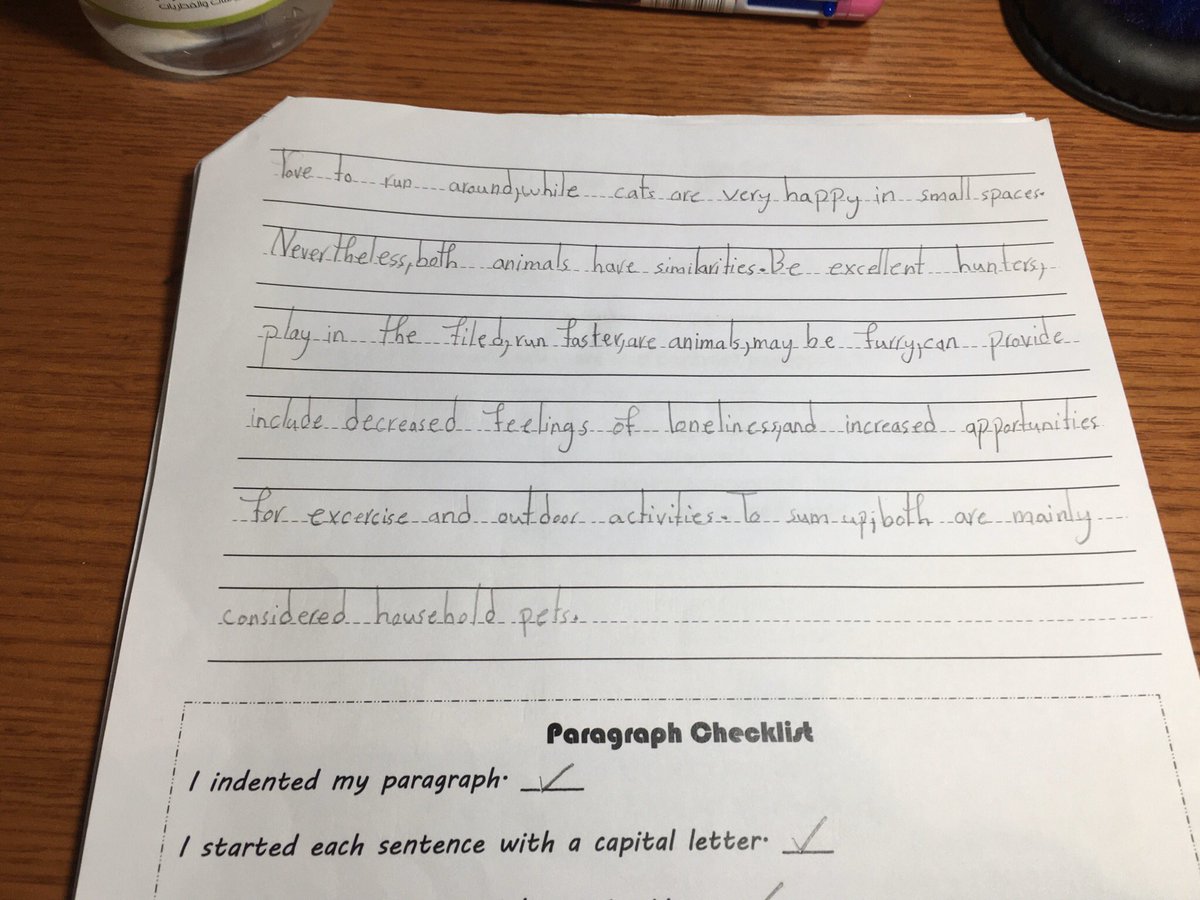 والفطريات
love to run around, while cats are very happy in small spaces.
Nevertheless, both animals have similarities. Be excellent hunters,
play in the filed, run faster, are animals, may be furry, can provide
include decreased feelings of loneliness, and increased apportunities
for excercise and outdoor activities. To sum up, both are mainly
considered household pets.
Paragraph Checklist
I indented my paragraph. ✓
I started each sentence with a capital letter. ✓